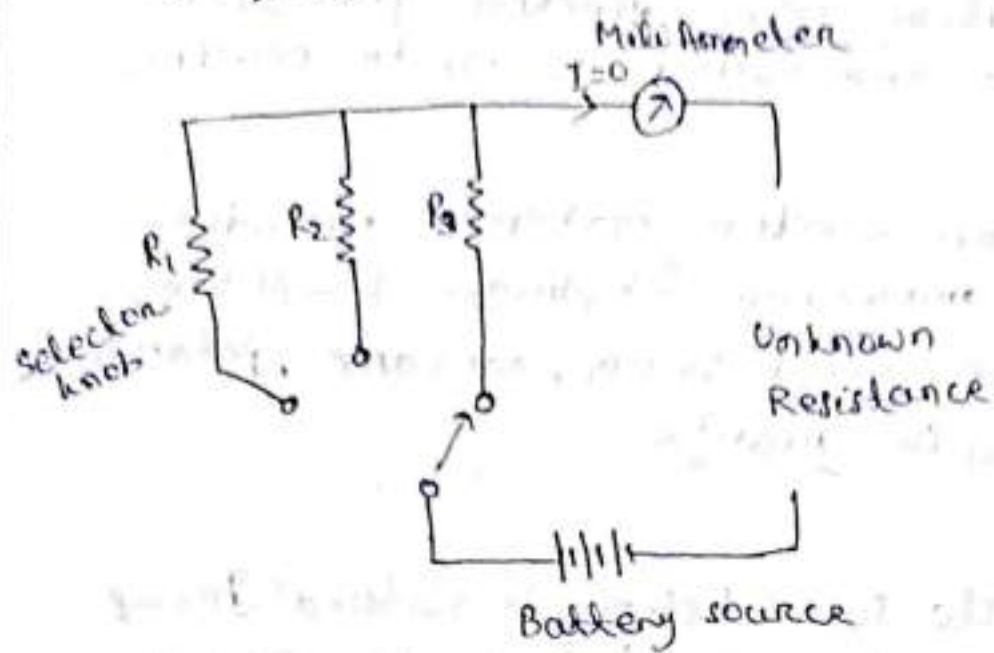 Mili Ammeter
I=0
R1
R2
R3
Selector
knob
Unknown
Resistance
Battery source